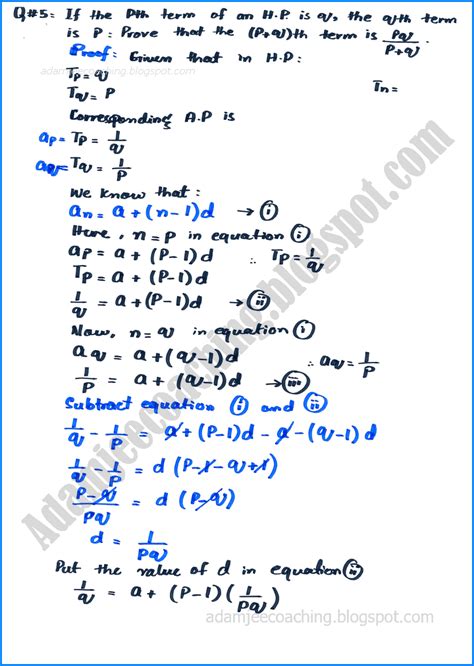 Q#5: If the Pth term of an H.P. is q, the qth term
is P: Prove that the (P+q)th term is Pq/P+q
adamjeecoaching.blogspot.com
Proof: Given that in H.P:
Tp = q Tn =
Tq = P
Corresponding A.P is
ap = Tp = 1/q
aq = Tq = 1/P
We know that:
an = a + (n-1)d → (i)
Here, n = P in equation (i)
ap = a + (P-1)d ∴ Tp = 1/q
Tp = a + (P-1)d
1/q = a + (P-1)d → (ii)
Now, n = q in equation (i)
aq = a + (q-1)d ∴ aq = 1/P
1/P = a + (q-1)d → (iii)
Subtract equation (i) and (ii)
1/q - 1/P = a + (P-1)d - a - (q-1)d
1/q - 1/P = d (P-1-q+1)
P-q/Pq = d (P-q)
d = 1/Pq
Put the value of d in equation (ii)
1/q = a + (P-1) (1/Pq)
adamjeecoaching.blogspot.com
Adamjeecoaching.blogspot.com